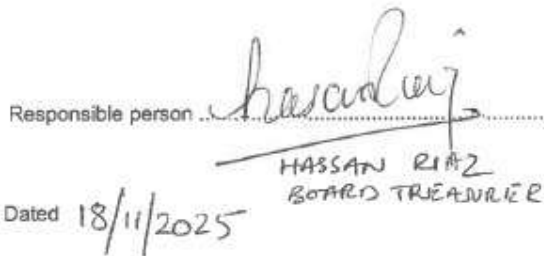 Responsible person ..........
HASSAN RIAZ
BOARD TREASURER
Dated 18/11/2025